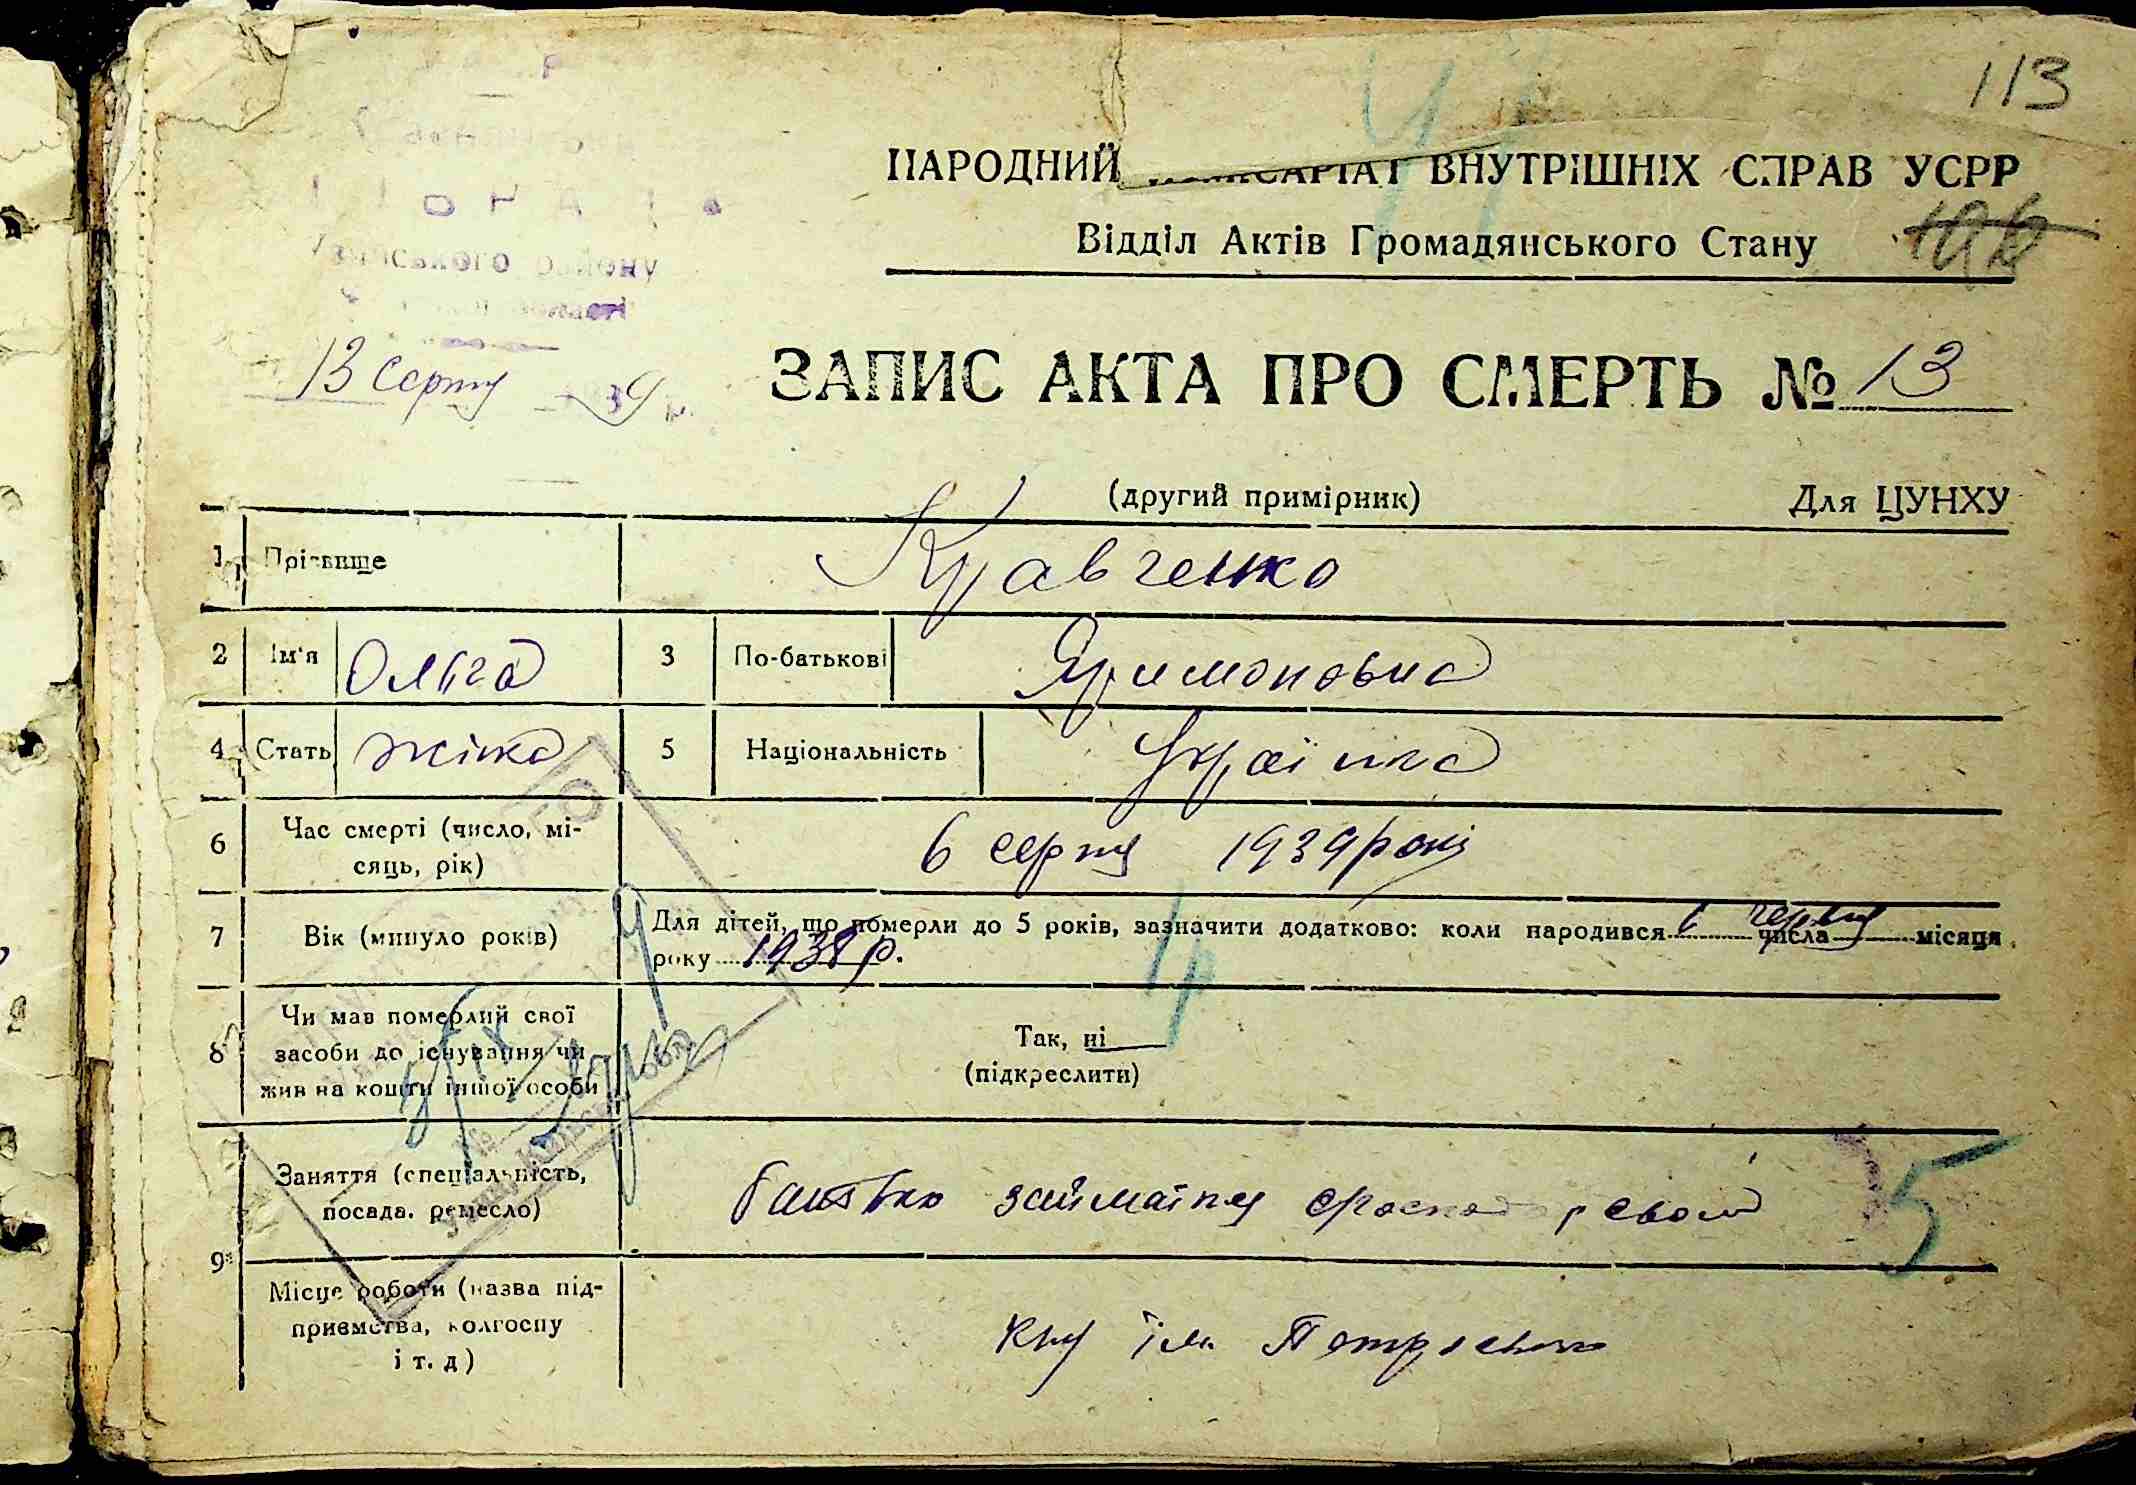 113
НАРОДНИЙ КОМІСАРІАТ ВНУТРІШНІХ СПРАВ УСРР
Відділ Актів Громадянського Стану
району
області
13 серпня 1939 р.
ЗАПИС АКТА ПРО СМЕРТЬ № 13
(другий примірник) Для ЦУНХУ
1 Прізвище Кравченко
2 Ім'я Ольга 3 По-батькові
4 Стать жінка 5 Національність Українка
6 Час смерті (число, мі-
сяць, рік) 6 серпня 1939 року
7 Вік (минуло років) Для дітей, що померли до 5 років, зазначити додатково: коли народився 1 числа червня місяця
року 1938 р.
1р
8 Чи мав померлий свої
засоби до існування чи
жив на кошти іншої особи
Так, ні
(підкреслити)
9 Заняття (спеціальність,
посада, ремесло) батько
5
Місце роботи (назва під-
приємства, колгоспу
і т. д) ім. Петровського